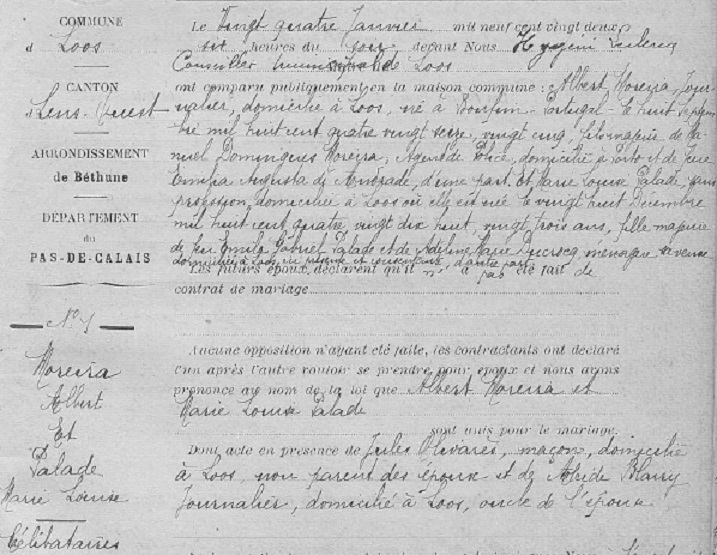 COMMUNE
d Loos
CANTON
d Lens-Ouest
ARRONDISSEMENT
de Béthune
DÉPARTEMENT
du
PAS-DE-CALAIS
Moreira
Albert
Et
Palade
Marie Louise
Célibataires
Le Vingt quatre Janvier mil neuf cent vingt deux
six heures du soir, devant Nous Leclercq
Conseiller municipal de Loos
ont comparu publiquement en la maison commune : Albert Moreira, Jour-
nalier, domicilié à Loos, né à Bomfim - Portugal - le huit Septem
bre mil huit cent quatre vingt seize, vingt cinq, fils majeur de
Domingues Moreira, Agent de Police, domicilié à Porto et de feue
Augusta de Andrade, d'une part. Et Marie Louise Palade, sans
profession, domiciliée à Loos où elle est née le vingt huit Décembre
mil huit cent quatre vingt dix huit, vingt trois ans, fille majeure
de feu Emile Gabriel Palade et de Marie Ducrocq, ménagère sa veuve
domiciliée à Loos, ici présente et consentante, d'autre part.
Les futurs époux déclarent qu'il n' a pas été fait de
contrat de mariage
Aucune opposition n'ayant été faite, les contractants ont déclaré
l'un après l'autre vouloir se prendre pour époux et nous avons
prononcé au nom de la loi que Albert Moreira et
Marie Louise Palade
sont unis pour le mariage.
Dont acte en présence de Jules Olivares, maçon, domicilié
à Loos, non parent des époux et de Blairy
Journalier, domicilié à Loos, oncle de l'épouse